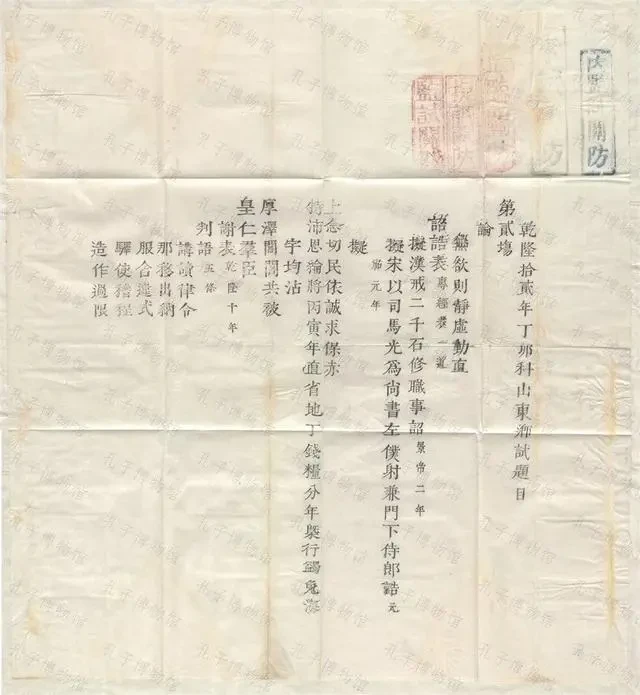 乾隆拾貳年丁卯科山東鄉試題目
第貳塲
論
無欲則靜虛動直
詔誥表專經者一道
擬漢戒二千石修職事詔景帝二年
擬宋以司馬光爲尚書左僕射兼門下侍郎誥元
祐元年
擬
上念切民依誠求保赤
特沛恩綸將丙寅年直省地丁錢糧分年槩行蠲免海
宇均沾
厚澤閭閻共被
皇仁羣臣
謝表乾隆十年
判語五條
講讀律令
那移出納
服舍違式
驛使稽程
造作過限
內監試關防
監試關防
孔子博物馆